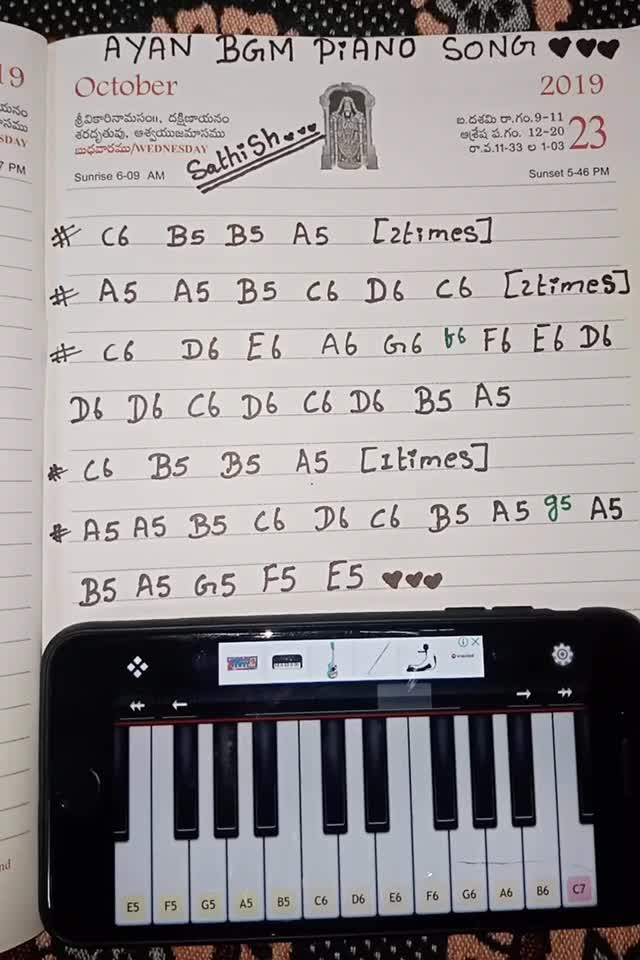 AYAN BGM PIANO SONG ♥♥♥
19
October
2019
శ్రీవికారినామసంı, దక్షిణాయనం
శరదృతువు, ఆశ్వయుజమాసము
బుధవారము/WEDNESDAY
బ.దశమి రా.గం.9-11
ఆశ్లేష ప.గం. 12-20
రా.వ.11-33 ల 1-03
23
SDAY
7 PM
Sunrise 6-09 AM
SathiSh ♥♥♥
Sunset 5-46 PM
# C6 B5 B5 A5 [2times]
# A5 A5 B5 C6 D6 C6 [2times]
# C6 D6 E6 A6 G6 f6 F6 E6 D6
D6 D6 C6 D6 C6 D6 B5 A5
* C6 B5 B5 A5 [1times]
* A5 A5 B5 C6 D6 C6 B5 A5 g5 A5
B5 A5 G5 F5 E5 ♥♥♥
E5 F5 G5 A5 B5 C6 D6 E6 F6 G6 A6 B6 C7